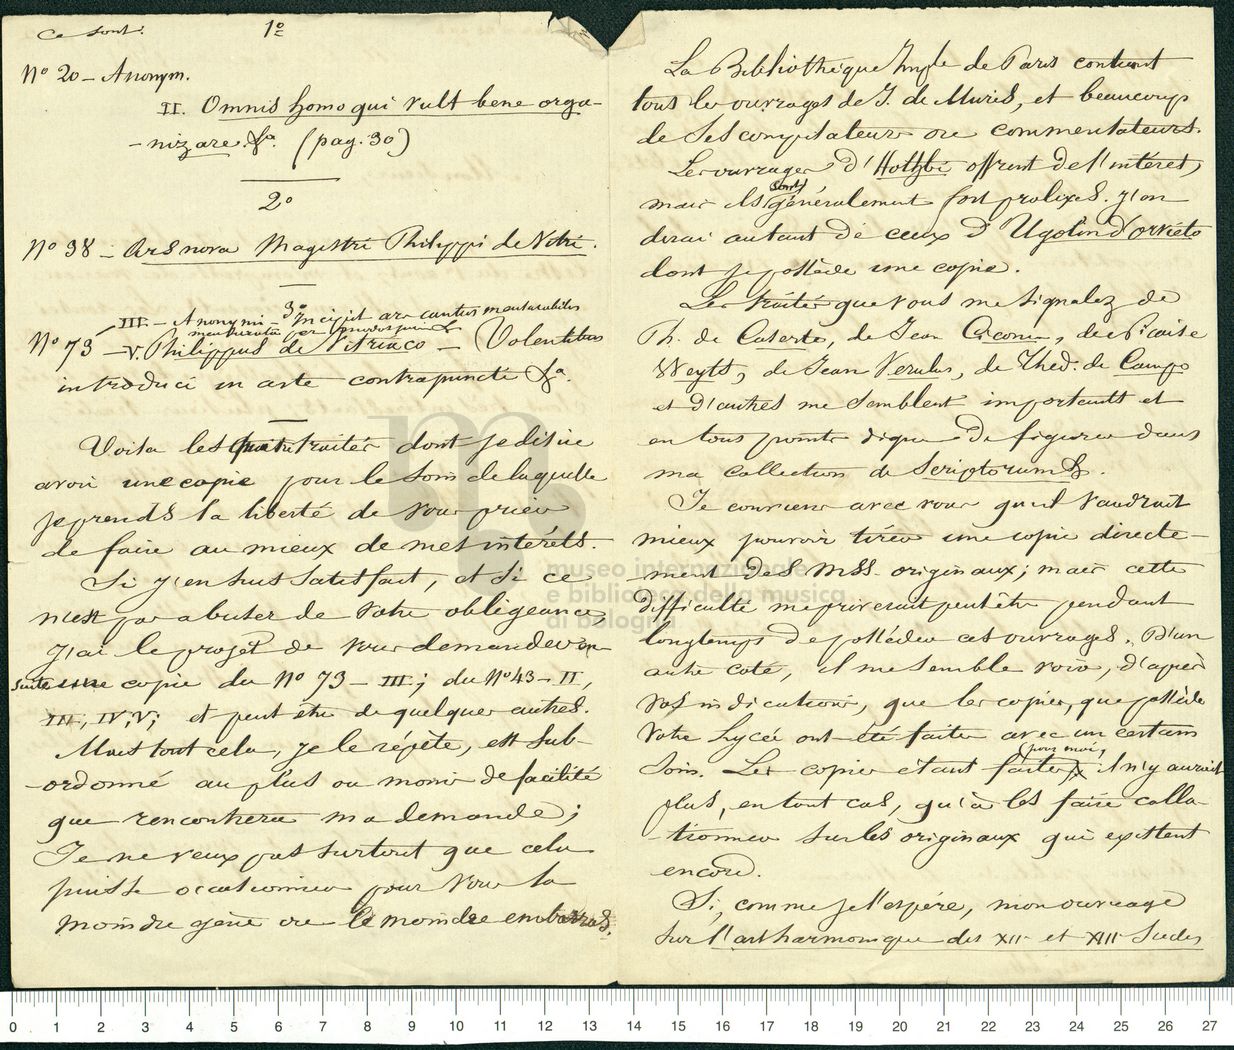 Ce sont: 1º
Nº 20 – Anonym.
II. Omnis homo qui vult bene orga-
-nizare. &a. (pag. 30)
2º
Nº 38 – Ars nova Magistri Philippi de Vitri.
3º
III. – Anonymi – Incipit ars cantus mensurabilis
mensurata per modos juris
Nº 73 – V. Philippus de Vitriaco – Volentibus
introduci in arte contrapuncti &a.
Voila les quatre traités dont je désire
avoir une copie pour le soin de laquelle
je prends la liberté de vous prier
de faire au mieux de mes intérêts.
Si j'en suis satisfait, et si ce
n'est pas abuser de votre obligeance,
j'ai le projet de vous demander en-
suite une copie du Nº 73 – III; du Nº 43 – II,
III, IV, V; et peut être de quelques autres.
Mais tout cela, je le répète, est sub-
ordonné au plus ou moins de facilité
que rencontrera ma demande;
Je ne veux pas surtout que cela
puisse occasionner pour vous la
moindre gêne ou le moindre embarras.
La Bibliothèque Imple de Paris contient
tous les ouvrages de J. de Muris, et beaucoup
de ses compilateurs ou commentateurs.
Les ouvrages d'Hothbi offrent de l'intéret,
mais ils sont généralement fort prolixes. J'en
dirai autant de ceux d'Ugolin d'orvieto
dont je possède une copie.
Les traités que vous me signalez de
Th. de Caserte, de Jean Ciconia, de Nicaise
Weyts, de Jean Verulus, de Thed. de Campo
et d'autres me semblent importants et
en tous points dignes de figurer dans
ma collection de Scriptorum &.
Je conviens avec vous qu'il vaudrait
mieux pouvoir tirer une copie directe-
ment des mss. originaux; mais cette
difficulté me priverait peut être pendant
longtemps de posséder ces ouvrages. D'un
autre coté, il me semble voir, d'après
vos indications, que les copies, que possède
votre Lycée ont été faites avec un certain
soin. Les copies étant faites (pour moi), il n'y aurait
plus, en tout cas, qu'à les faire colla-
-tionner sur les originaux qui existent
encore.
Si, comme je l'espère, mon ouvrage
sur l'art harmonique des XIIe et XIIIe siècles
museo internazionale
e biblioteca della musica
di bologna
0 1 2 3 4 5 6 7 8 9 10 11 12 13 14 15 16 17 18 19 20 21 22 23 24 25 26 27